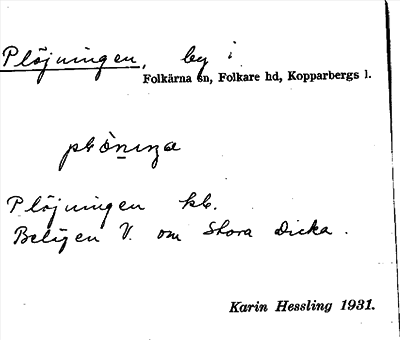 Plöjningen, by i
Folkärna sn, Folkare hd, Kopparbergs l.
Plöjningen kb.
Beligen V. om Stora Dicka.
Karin Hessling 1931.